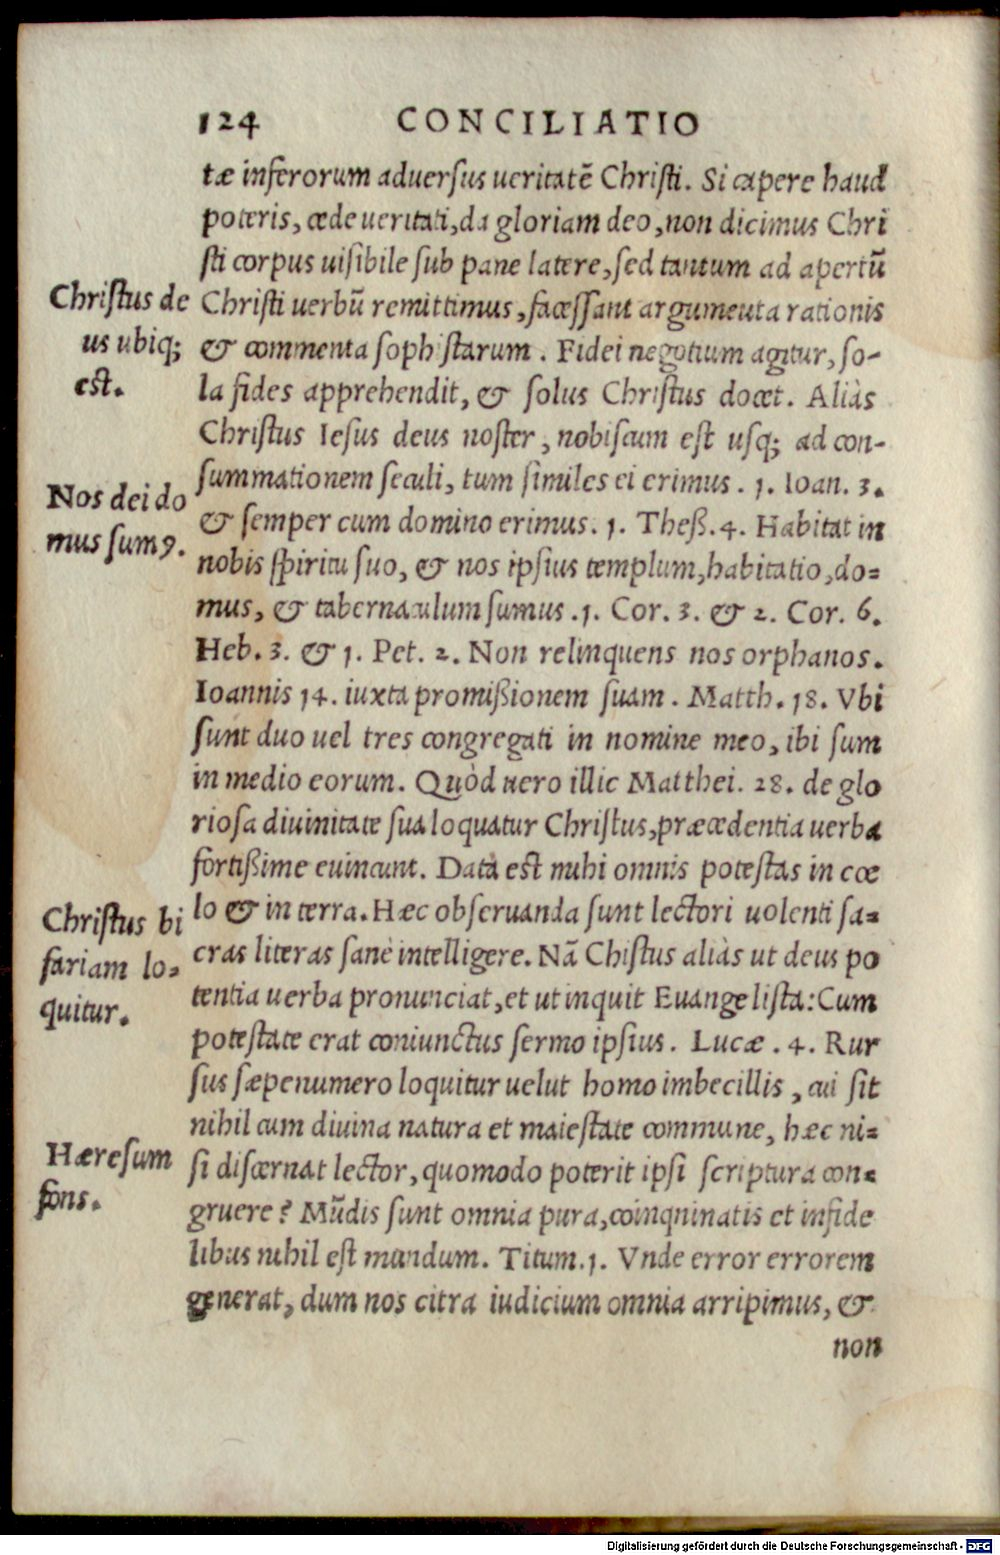 124 CONCILIATIO
tæ inferorum aduersus ueritatẽ Christi. Si capere haud
poteris, cæde ueritati, da gloriam deo, non dicimus Chri
sti corpus uisibile sub pane latere, sed tantum ad apertũ
Christi uerbũ remittimus, facessant argumenta rationis
& commenta sophistarum. Fidei negotium agitur, so-
la fides apprehendit, & solus Christus docet. Aliàs
Christus Iesus deus noster, nobiscum est usq; ad con-
summationem seculi, tum similes ei erimus. 1. Ioan. 3.
& semper cum domino erimus. 1. Theß. 4. Habitat in
nobis spiritu suo, & nos ipsius templum, habitatio, do=
mus, & tabernaculum sumus. 1. Cor. 3. & 2. Cor. 6.
Heb. 3. & 1. Pet. 2. Non relinquens nos orphanos.
Ioannis 14. iuxta promißionem suam. Matth. 18. Vbi
sunt duo uel tres congregati in nomine meo, ibi sum
in medio eorum. Quòd uero illic Matthei. 28. de glo
riosa diuinitate sua loquatur Christus, præcedentia uerba
fortißime euincunt. Data est mihi omnis potestas in cœ
lo & in terra. Hæc obseruanda sunt lectori uolenti sa=
cras literas sanè intelligere. Nã Chistus aliàs ut deus po
tentia uerba pronunciat, et ut inquit Euangelista: Cum
potestate erat coniunctus sermo ipsius. Lucæ. 4. Rur
sus sæpenumero loquitur uelut homo imbecillis, cui sit
nihil cum diuina natura et maiestate commune, hæc ni=
si discernat lector, quomodo poterit ipsi scriptura con=
gruere? Mũdis sunt omnia pura, coinqninatis et infide
libus nihil est mundum. Titum. 1. Vnde error errorem
generat, dum nos citra iudicium omnia arripimus, &
non
Christus de
us ubiq;
est.
Nos dei do
mus sumꝰ.
Christus bi
fariam lo=
quitur.
Hæresum
fons.
Digitalisierung gefördert durch die Deutsche Forschungsgemeinschaft - DFG